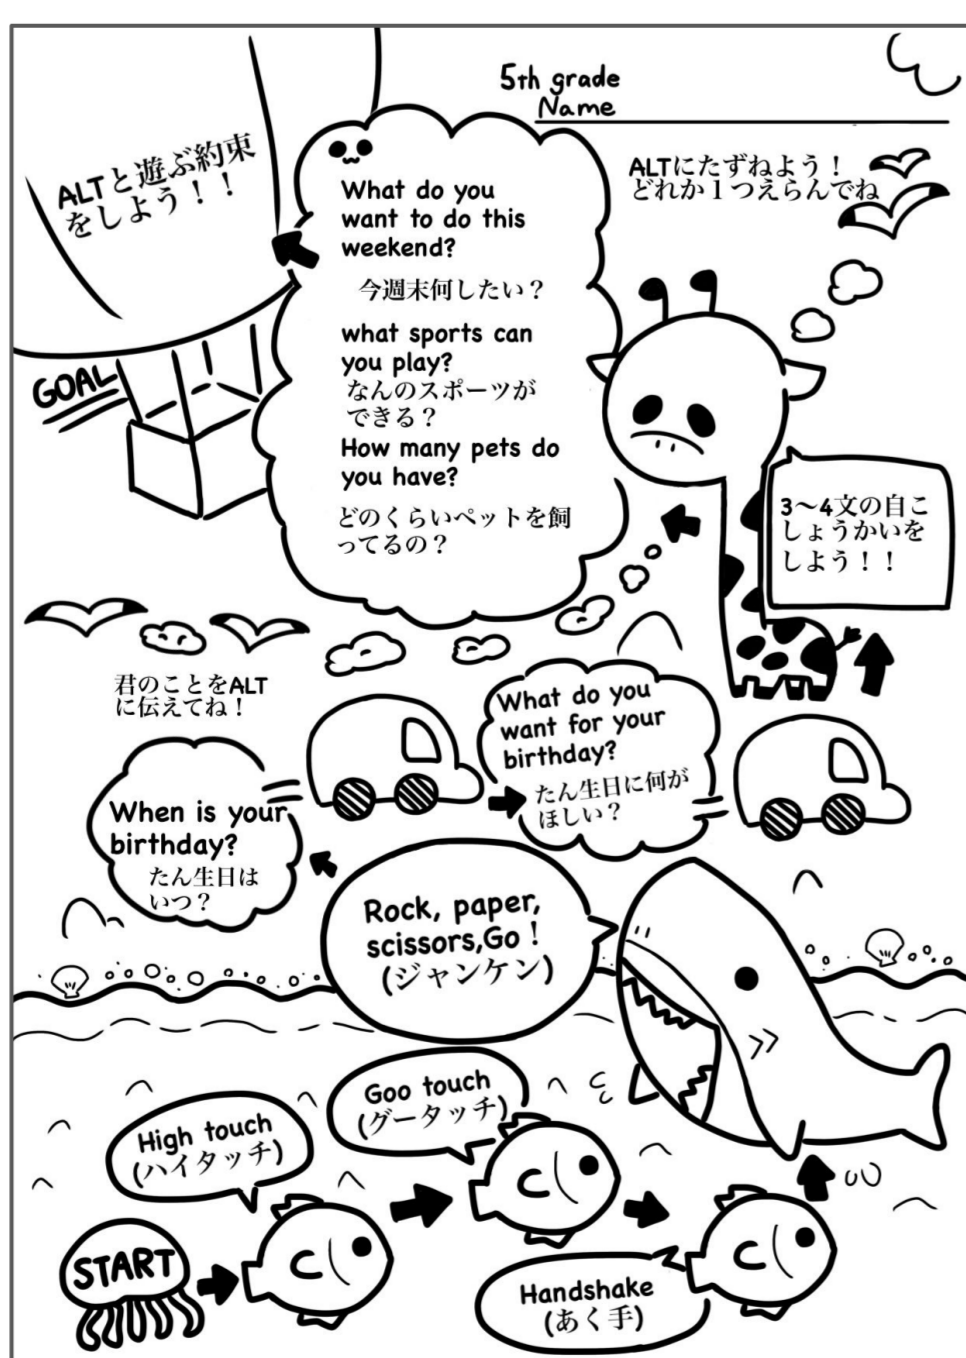 5th grade
Name
ALTと遊ぶ約束
をしよう！！
What do you
want to do this
weekend?
今週末何したい？
what sports can
you play?
なんのスポーツが
できる？
How many pets do
you have?
どのくらいペットを飼
ってるの？
ALTにたずねよう！
どれか１つえらんでね
GOAL
3〜4文の自こ
しょうかいを
しよう！！
君のことをALT
に伝えてね！
What do you
want for your
birthday?
たん生日に何が
ほしい？
When is your
birthday?
たん生日は
いつ？
Rock, paper,
scissors,Go！
(ジャンケン)
Goo touch
(グータッチ)
High touch
(ハイタッチ)
START
Handshake
(あく手)